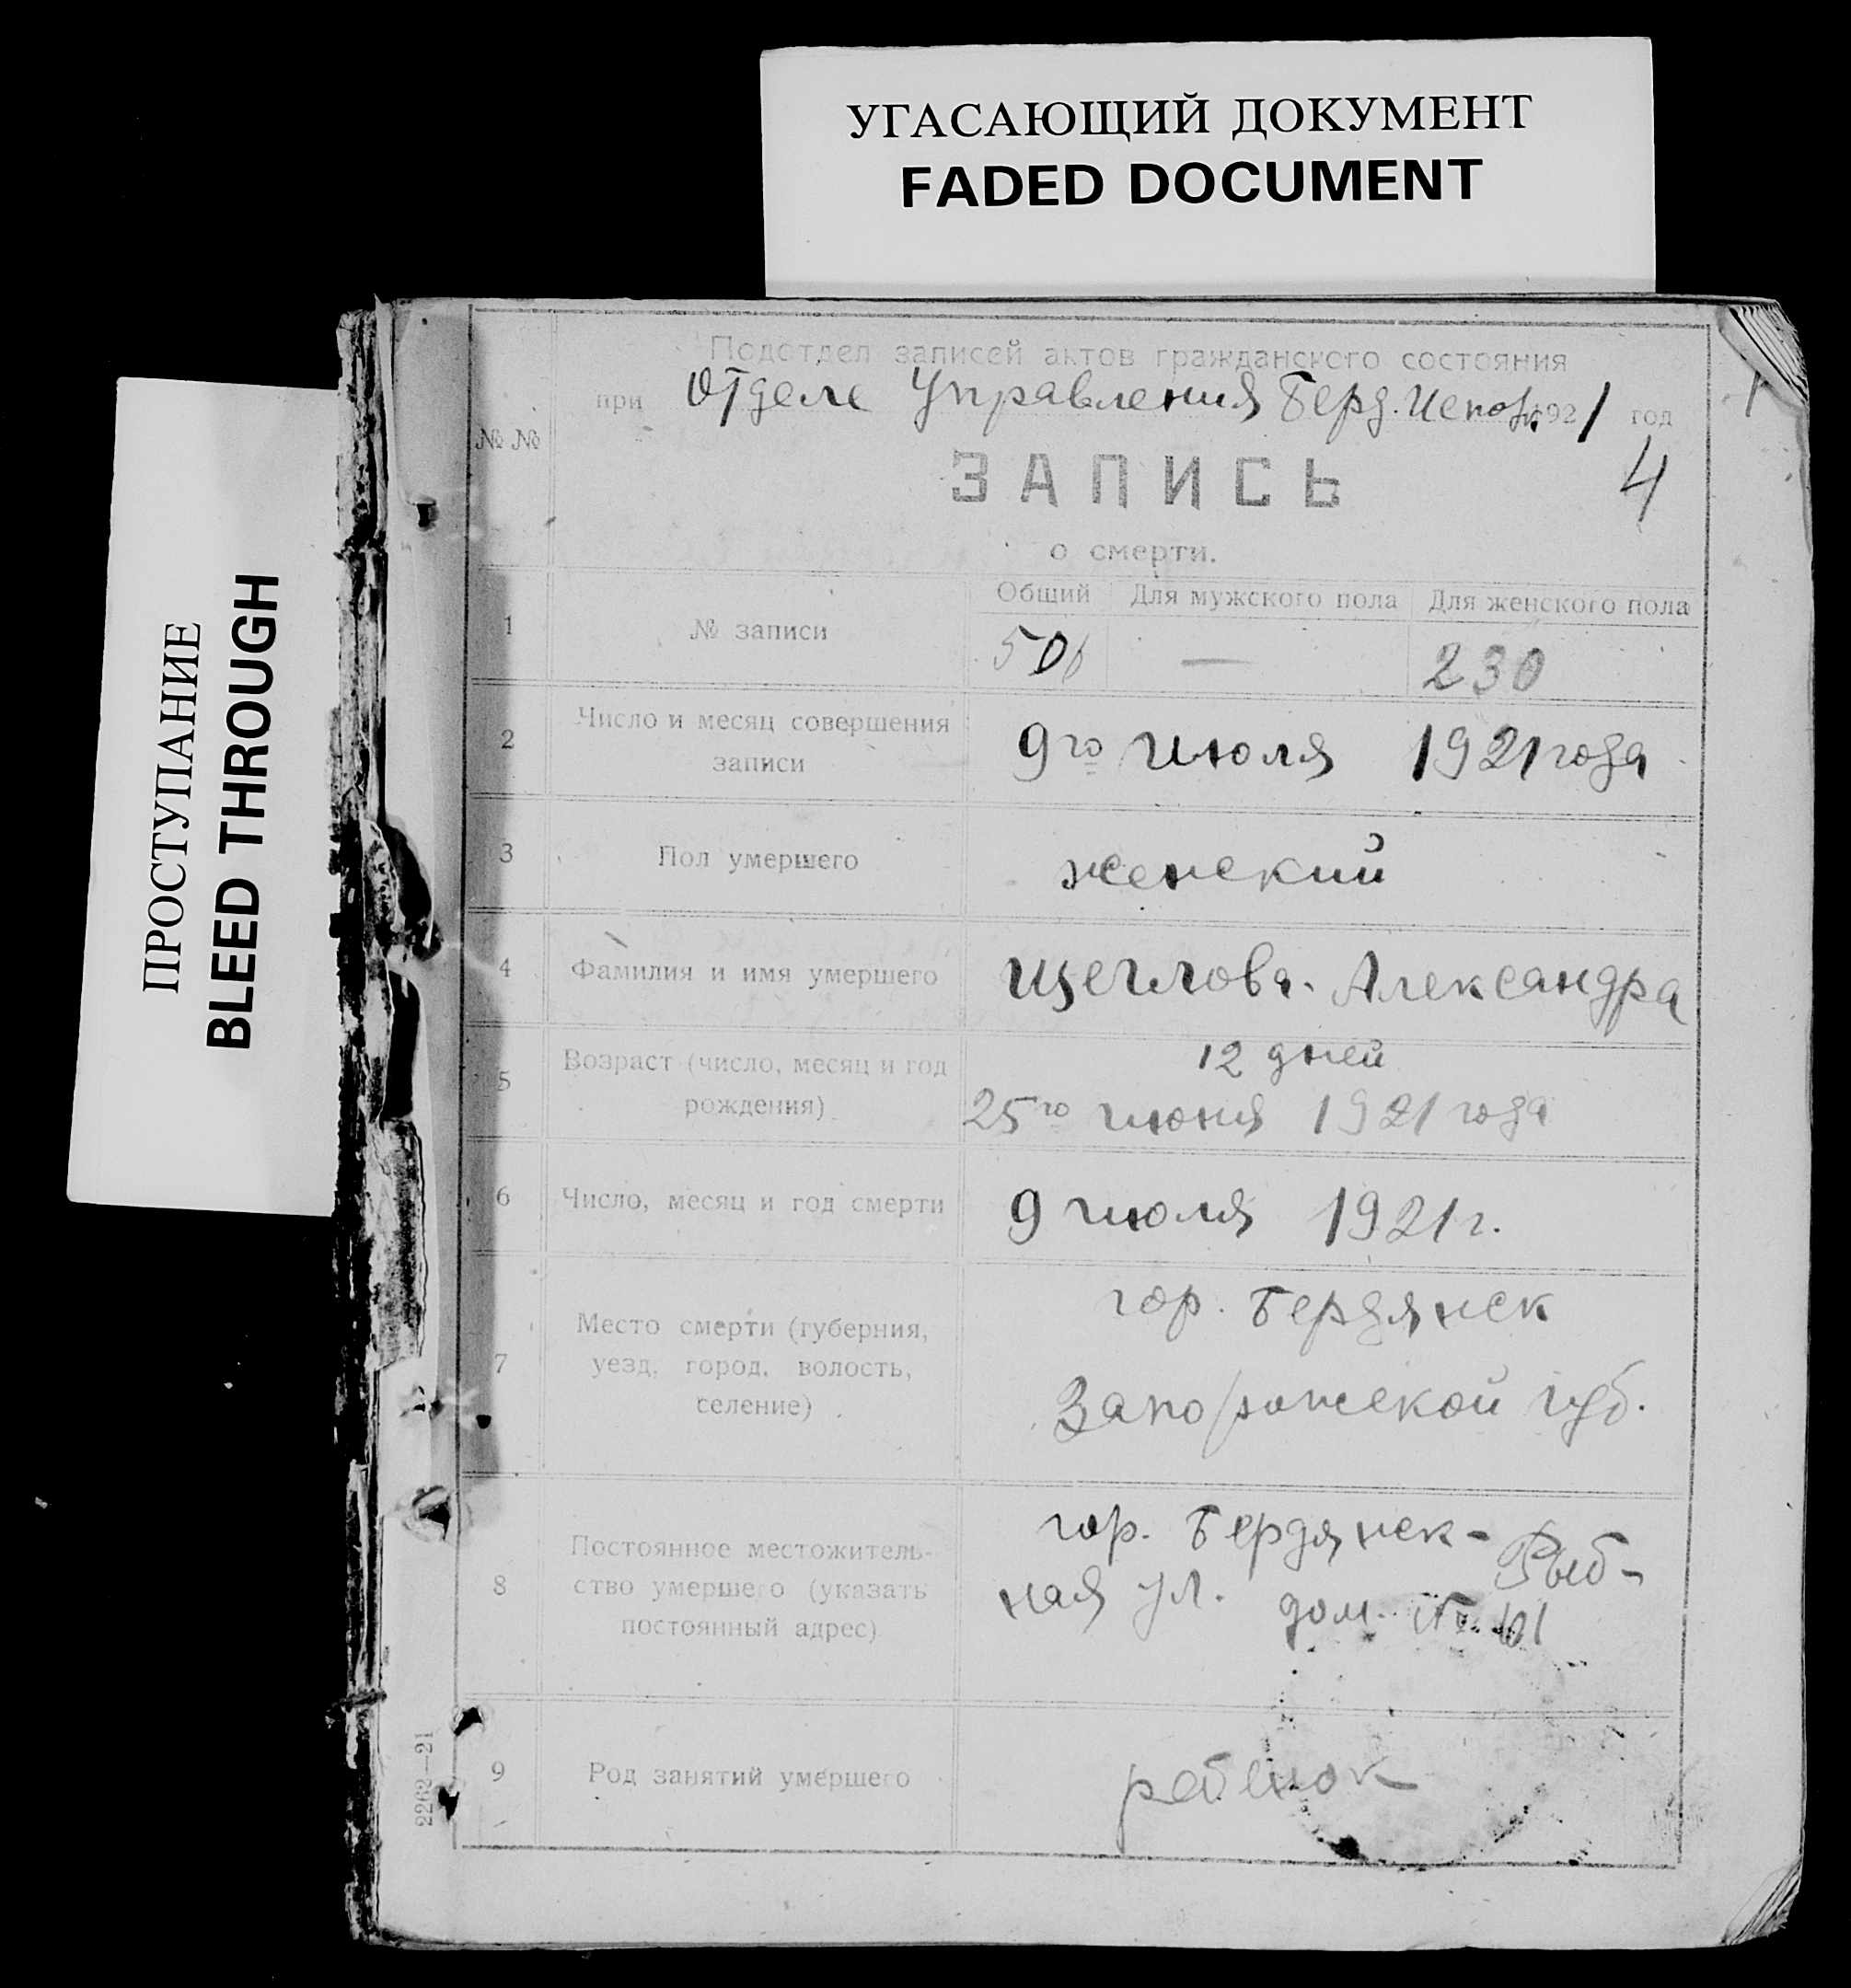 УГАСАЮЩИЙ ДОКУМЕНТ
FADED DOCUMENT
ПРОСТУПАНИЕ
BLEED THROUGH
Подотдел записей актов гражданского состояния
при Отделе Управления Берд. 1921 год
1
№ №
4
ЗАПИСЬ
о смерти.
Общий Для мужского пола Для женского пола
1 № записи 506 — 230
2 Число и месяц совершения
записи
9го июля 1921 года
3 Пол умершего женский
4 Фамилия и имя умершего Щеглова Александра
5 Возраст (число, месяц и год
рождения)
12 дней
25го июня 1921 года
6 Число, месяц и год смерти 9 июля 1921 г.
7 Место смерти (губерния,
уезд, город, волость,
селение)
гор. Бердянск
Запорожской губ.
8 Постоянное местожитель-
ство умершего (указать
постоянный адрес)
гор. Бердянск - Рыб-
ная ул. дом №
9 Род занятий умершего ребенок
2262—21